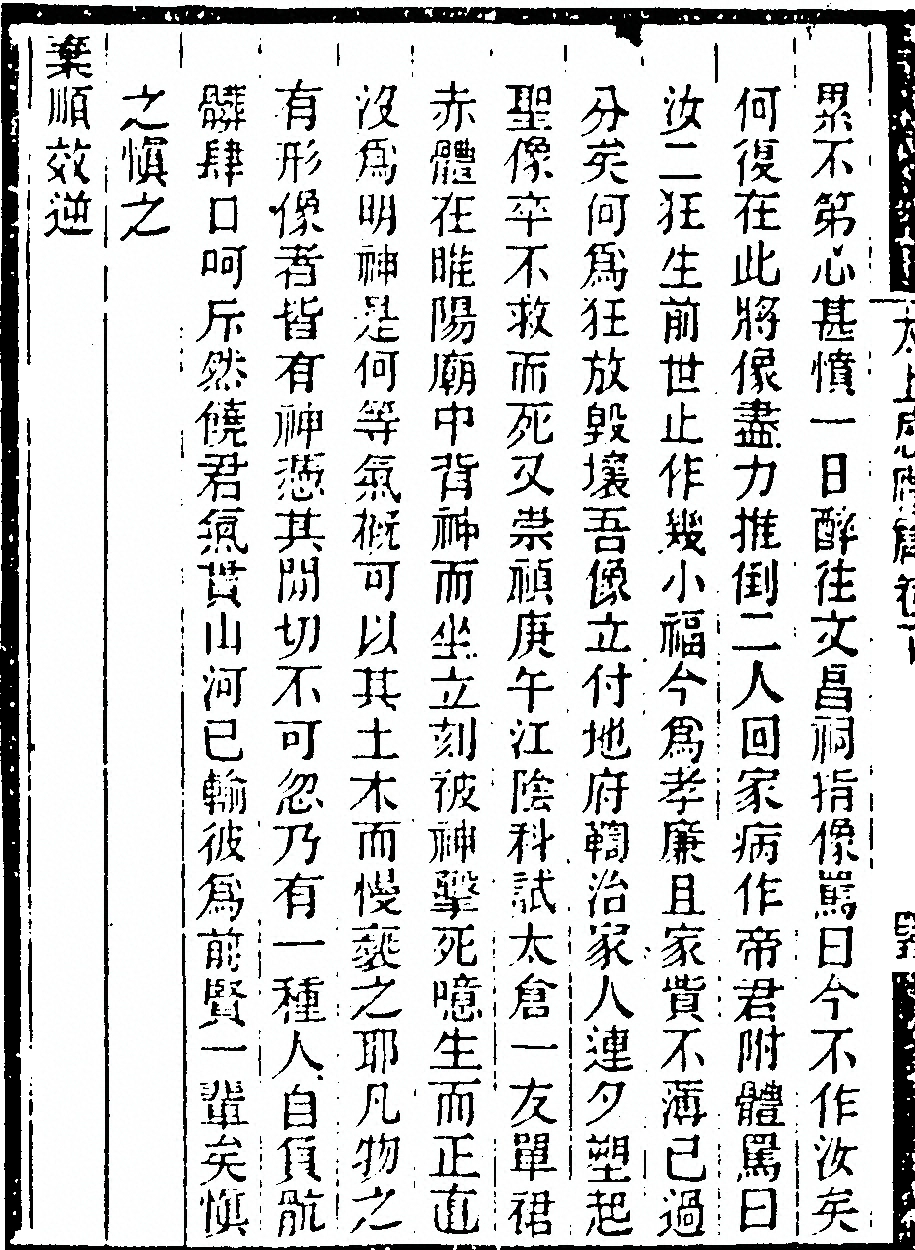 累不第心甚憤一日醉往文昌祠指像罵曰今不作汝矣
何復在此將像盡力推倒二人回家病作帝君附體罵曰
汝二狂生前世止作幾小福今爲孝廉且家貲不薄已過
分矣何爲狂放毀壞吾像立付地府鞫治家人連夕塑起
聖像卒不救而死又崇禎庚午江陰科試太倉一友單裙
赤體在睢陽廟中背神而坐立刻被神擊死噫生而正直
沒爲明神是何等氣概可以其土木而慢褻之耶凡物之
有形像者皆有神憑其間切不可忽乃有一種人自負骯
髒肆口呵斥然饒君氣貫山河已輸彼爲前賢一輩矣愼
之愼之
棄順效逆